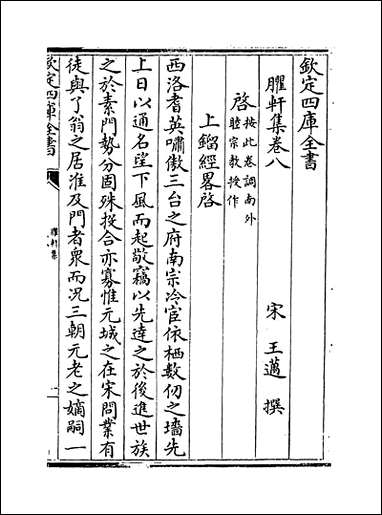 欽定四庫全書
臞軒集卷八
宋 王邁 撰
啓
按此卷調南外
睦宗教授作
上鎦經畧啓
西洛耆英嘯傲三台之府南宗冷官依栖數仞之墻先
上日以通名望下風而起敬竊以先達之於後進世族
之於素門勢分固殊投合亦寡惟元城之在宋問業有
徒與了翁之居淮及門者衆而況三朝元老之嫡嗣一
欽定四庫全書
臞軒集